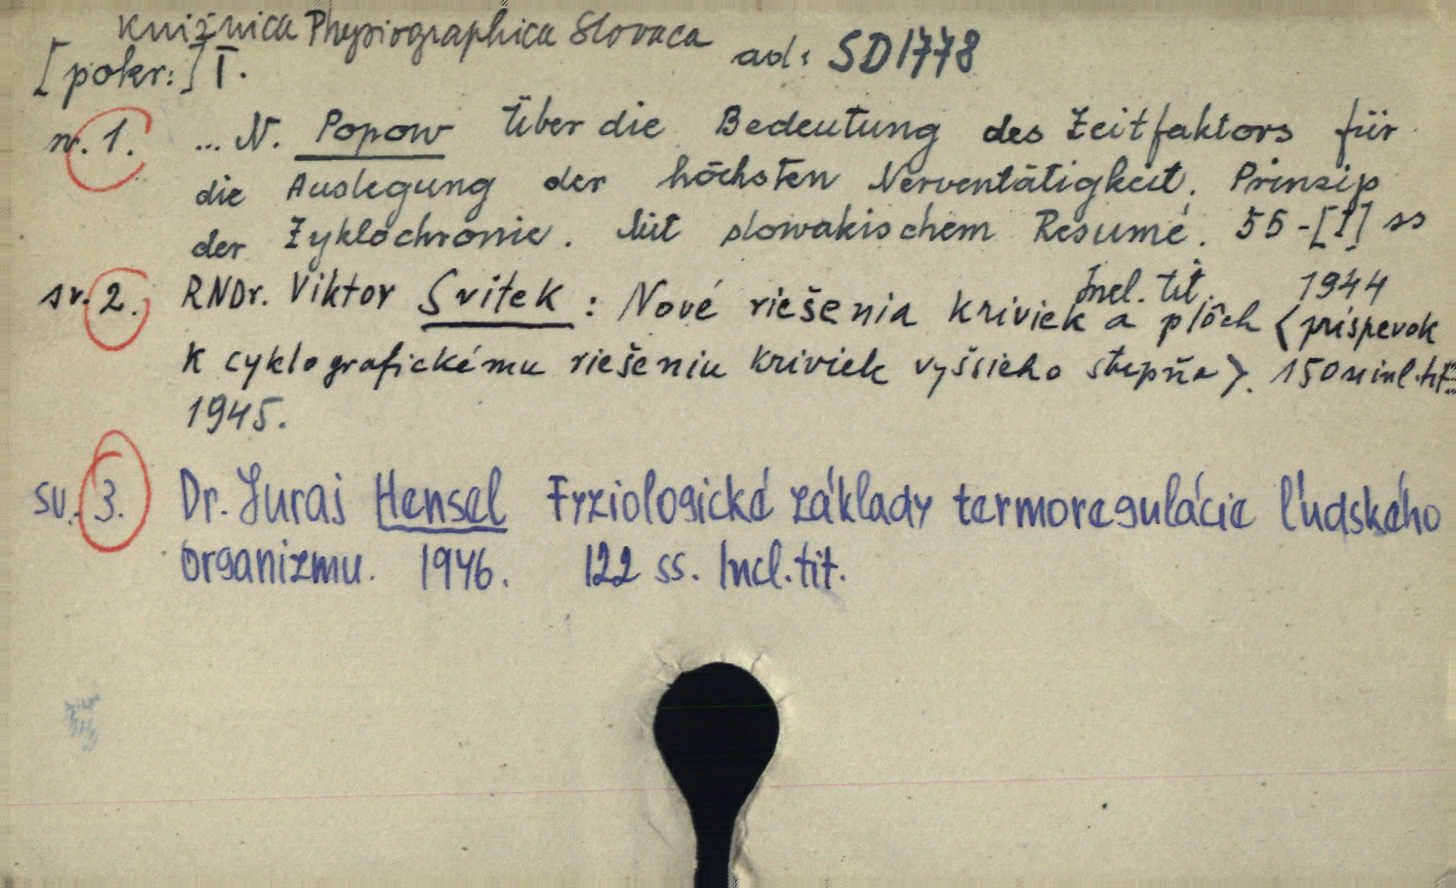 Knižnica Physiographica Slovaca
[pokr:] I. ad: SD1778
sv. 1. ... N. Popow Über die Bedeutung des Zeitfaktors für
die Auslegung der höchsten Nerventätigkeit. Prinzip
der Zyklochronie. Mit slowakischem Resumé. 55-[I] ss
Incl. tit. 1944
sv. 2. RNDr. Viktor Svitek: Nové riešenia kriviek a plôch (príspevok
k cyklografickému riešeniu kriviek vyššieho stupňa). 150 s incl. tit
1945.
sv. 3. Dr. Juraj Hensel Fyziologické základy termoregulácie ľudského
organizmu. 1946. 122 ss. Incl. tit.